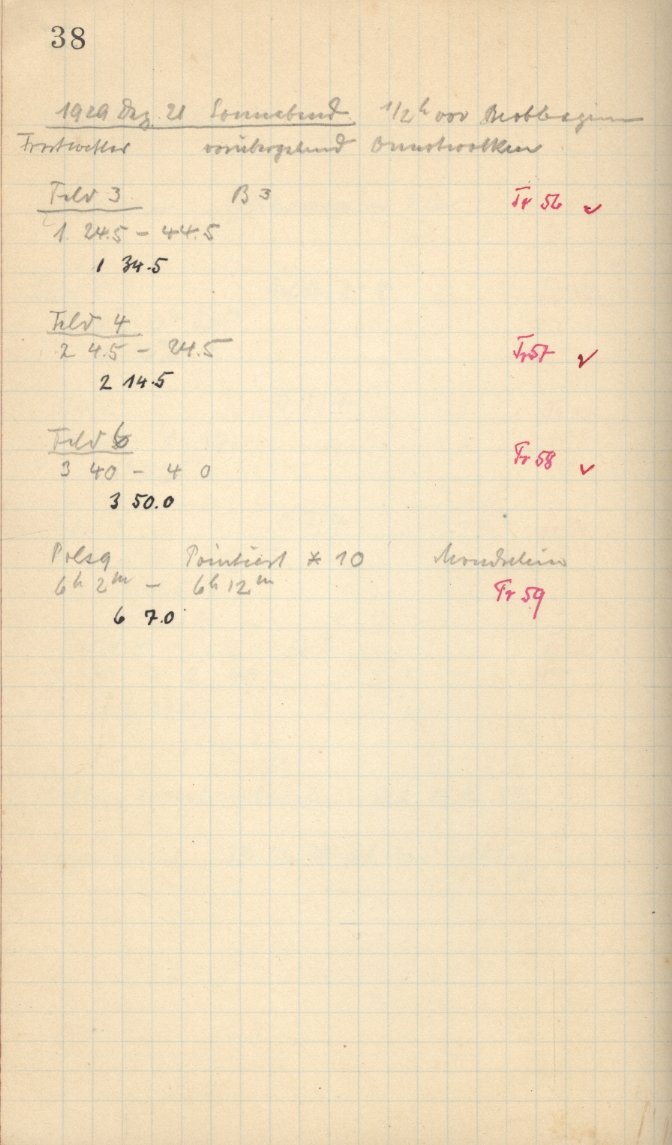 38
1929 Dez. 21 Sonnabend 1/2 h vor Beobbeginn
Frostwetter vorübergehend Dunstwolken
Feld 3 B 3 Fr 56 ✓
1 24.5 – 44.5
1 34.5
Feld 4
2 4.5 – 24.5 Fr 57 ✓
2 14.5
Feld 6
3 40 – 4 0 Fr 58 ✓
3 50.0
Polsq Pointiert * 10 Mondschein
6h 2m – 6h 12m Fr 59
6 7.0